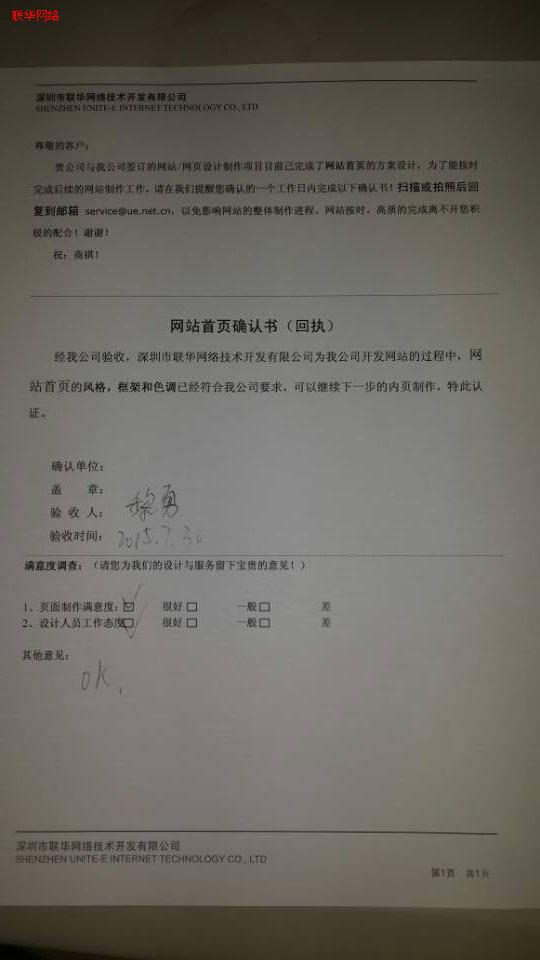 联华网络
深圳市联华网络技术开发有限公司
SHENZHEN UNITE-E INTERNET TECHNOLOGY CO., LTD
尊敬的客户：
贵公司与我公司签订的网站/网页设计制作项目目前已完成了网站首页的方案设计，为了能按时
完成后续的网站制作工作，请在我们提醒您确认的一个工作日内完成以下确认书！扫描或拍照后回
复到邮箱 service@ue.net.cn，以免影响网站的整体制作进程。网站按时、高质的完成离不开您积
极的配合！谢谢！
祝：商祺！
网站首页确认书（回执）
经我公司验收，深圳市联华网络技术开发有限公司为我公司开发网站的过程中，网
站首页的风格，框架和色调已经符合我公司要求，可以继续下一步的内页制作，特此认
证。
确认单位：
盖 章：
验 收 人： 黎勇
验收时间： 2015.7.30
满意度调查：（请您为我们的设计与服务留下宝贵的意见！）
1、页面制作满意度：☑ 很好□ 一般□ 差
2、设计人员工作态度□ 很好□ 一般□ 差
其他意见：
OK.
深圳市联华网络技术开发有限公司
SHENZHEN UNITE-E INTERNET TECHNOLOGY CO., LTD
第1页 共1页